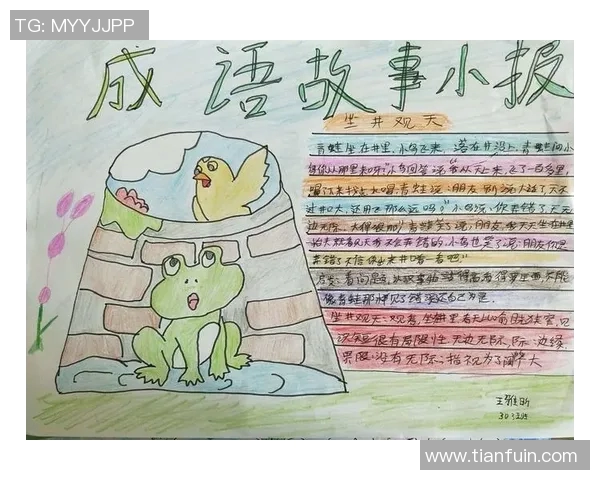 TG: MYYJJPP
成语故事小报
坐井观天
青蛙坐在井里,小鸟飞来,落在井沿上,青蛙问小
鸟你从那里来呀"小鸟回答说"我从天上来,飞了一百多里,
口渴了下来找水喝"青蛙说:朋友别说大话了天不
过井口大,还用飞那么远吗?"小鸟说,你弄错了天无
边无际,大得很哪!青蛙笑了说,朋友,我天天坐在井里
抬头就看见天我不会弄错的,小鸟也笑了说:朋友你是
弄错了不信你跳出来井口看一看吧"
看问题
像青蛙那样
坐井观天:观看,坐井里看天
沉短很有局限性,无边无际:际:边缘
界限没有无际:指视为了
王雅昕
www.tianfuin.com